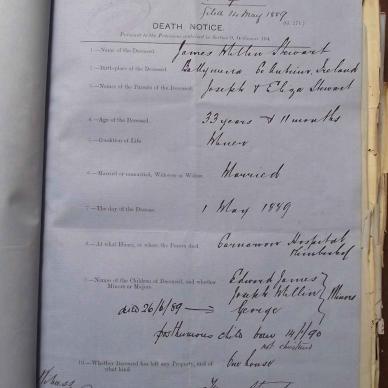 filed 14 May 1889
DEATH NOTICE.
Pursuant to the Provisions contained in Section 9, Ordinance 104.
1.—Name of the Deceased James Stewart
2.—Birth-place of the Deceased Ballymena Co Antrim, Ireland
3.—Names of the Parents of the Deceased Joseph & Eliza Stewart
4.—Age of the Deceased 33 years & 11 months
5.—Condition of Life Miner
6.—Married or unmarried, Widower or Widow Married
7.—The day of the Decease 1 May 1889
8.—At what House, or where the Person died Carnarvon Hospital
Kimberley
9.—Names of the Children of Deceased, and whether
Minors or Majors.
Edward James
Joseph
George
Minors
died 26/6/89
posthumous child born 14/1/90
not christened
10.—Whether Deceased has left any Property, and of
what kind
One house